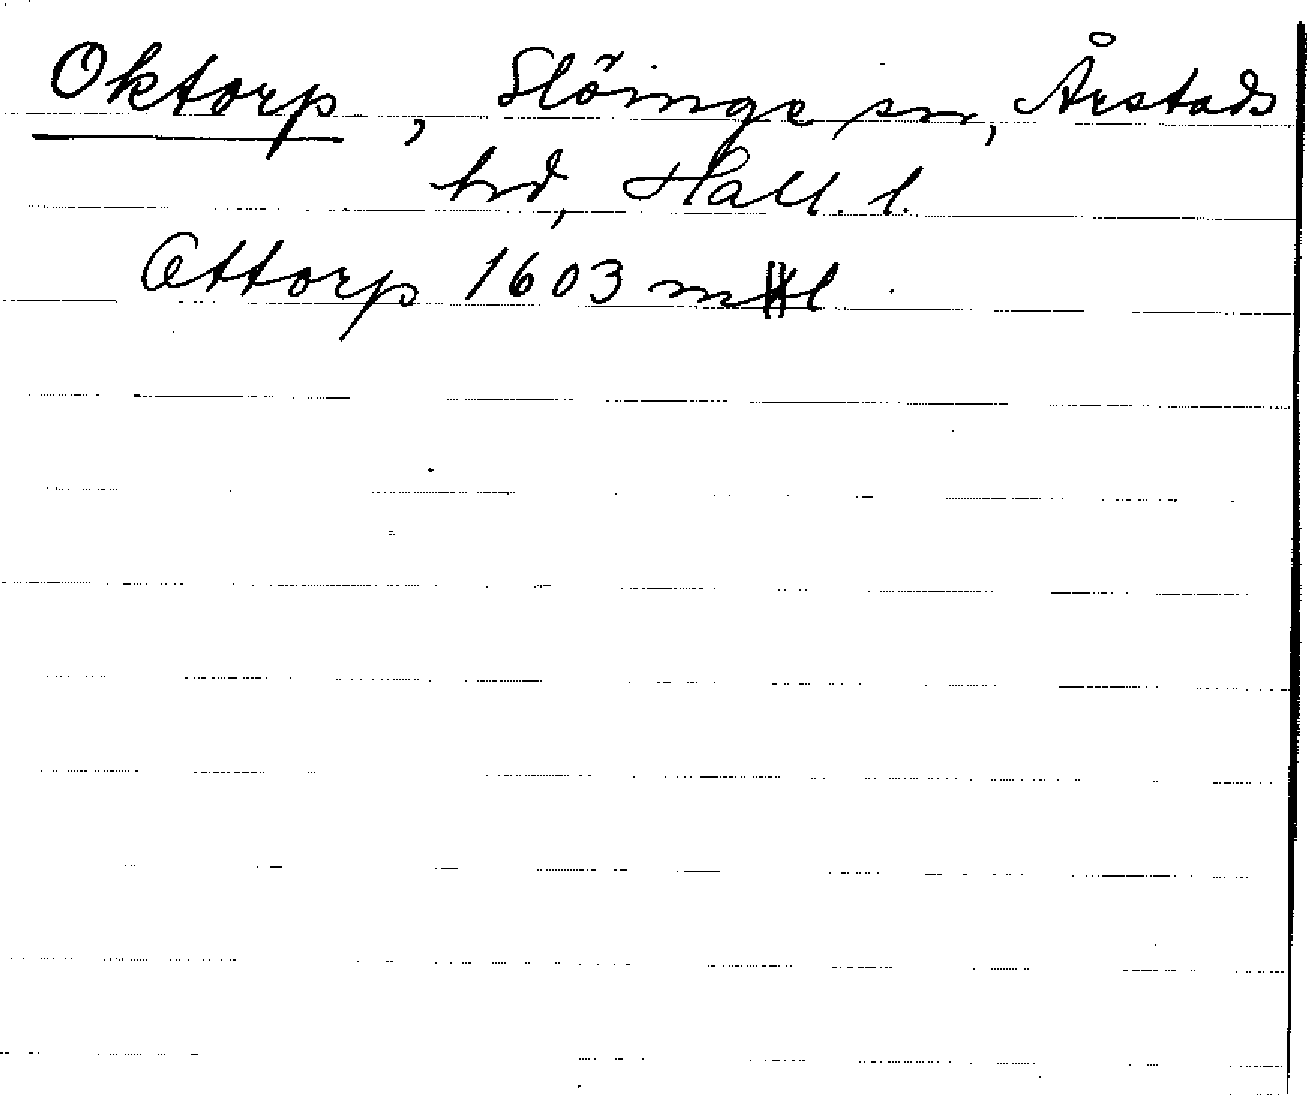 Oktorp, Slöinge sn, Årstads
hd, Hall. l.
Ottorp 1603 mtl